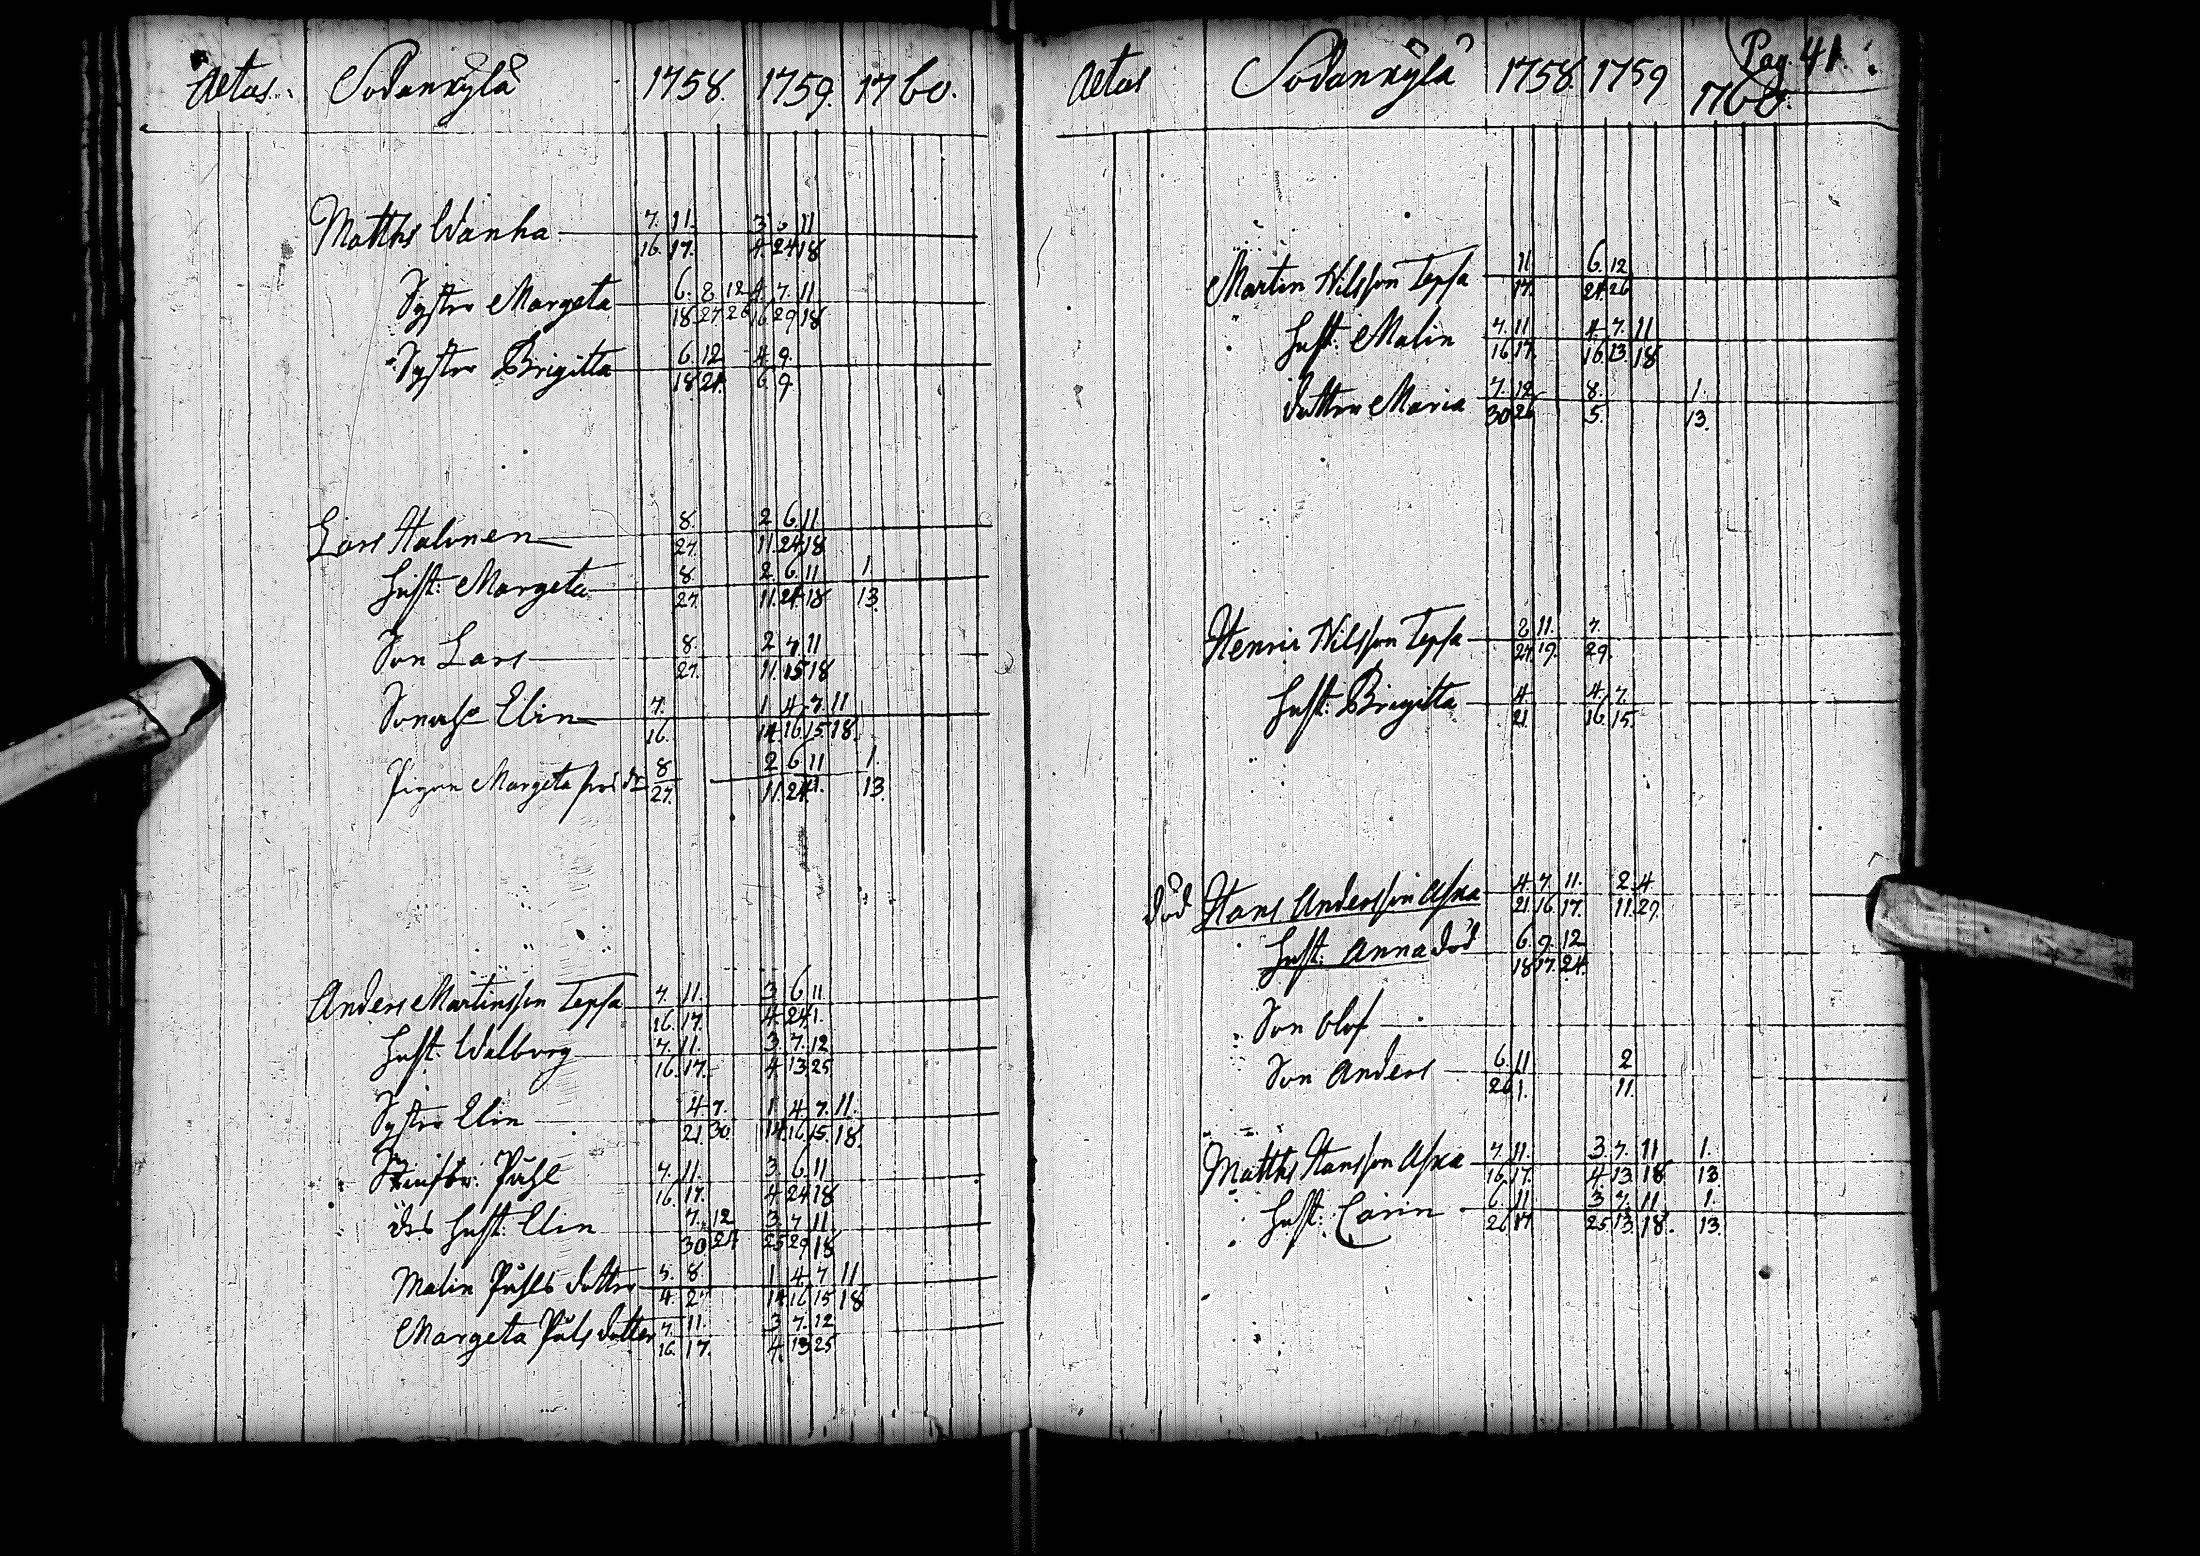 Aetas. Sodankylä 1758. 1759. 1760.
Matths Wanha 7. 11. 3 6 11
16. 17. 4. 24 18
Syster Margeta 6. 8 12 4. 7. 11
18 27 26 16 29 18
Syster Brigitta 6. 12 4. 9.
18 24. 6 9
Lars Halonen 8. 2 6 11
27. 11. 24 18
Hust: Margeta 8 2 6 11 1.
27. 11. 24 18 13.
Son Lars 8. 2 7 11
27. 11. 15 18
Elin 7. 1 4 7 11
16. 14 16 15 18.
Pigan Margeta 8 2 6 11 1.
27. 11. 24 1. 13.
Anders Martinsson Tepsa 7. 11. 3 6 11
16. 17. 4. 24 1.
Hust: Walborg 7. 11. 3. 7. 12
16. 17. 4 13 25
Syster Elin 4 7. 1 4 7. 11.
21 30 14 16 15. 18.
Påhl 7. 11. 3. 6 11
16 17. 4 24 18
des Hust: Elin 7. 12 3. 7 11.
30 24 25 29 18
Malin Påhls dotter 5. 8. 1 4 7 11
4. 27. 14 16 15 18
Margeta Påls dotter 7. 11. 3 7. 12
16. 17. 4. 13 25
Pag. 41.
Aetas Sodankylä 1758. 1759 1760.
Martin Nilsson Tepsa 11 6. 12
17. 24. 26
Hust: Malin 7. 11 4 7. 11
16 17. 16 13. 18
dotter Maria 7. 12 8. 1.
30 26 5. 13.
Henric Nilsson Tepsa 8 11. 7.
27. 19. 29.
Hust: Brigitta 4 4 7.
21. 16 15.
död Hans Andersson Aska 4 7. 11. 2 4
21. 16 17. 11. 29.
Hust: Anna död 6. 9. 12
18 17. 24.
Son Olof
Son Anders 6. 11 2
26 1. 11.
Matths Hansson Aska 7. 11. 3. 7. 11 1.
16. 17. 4. 13. 18 13
Hust: Carin 6. 11 3 7. 11 1.
26 17 25 13. 18. 13.